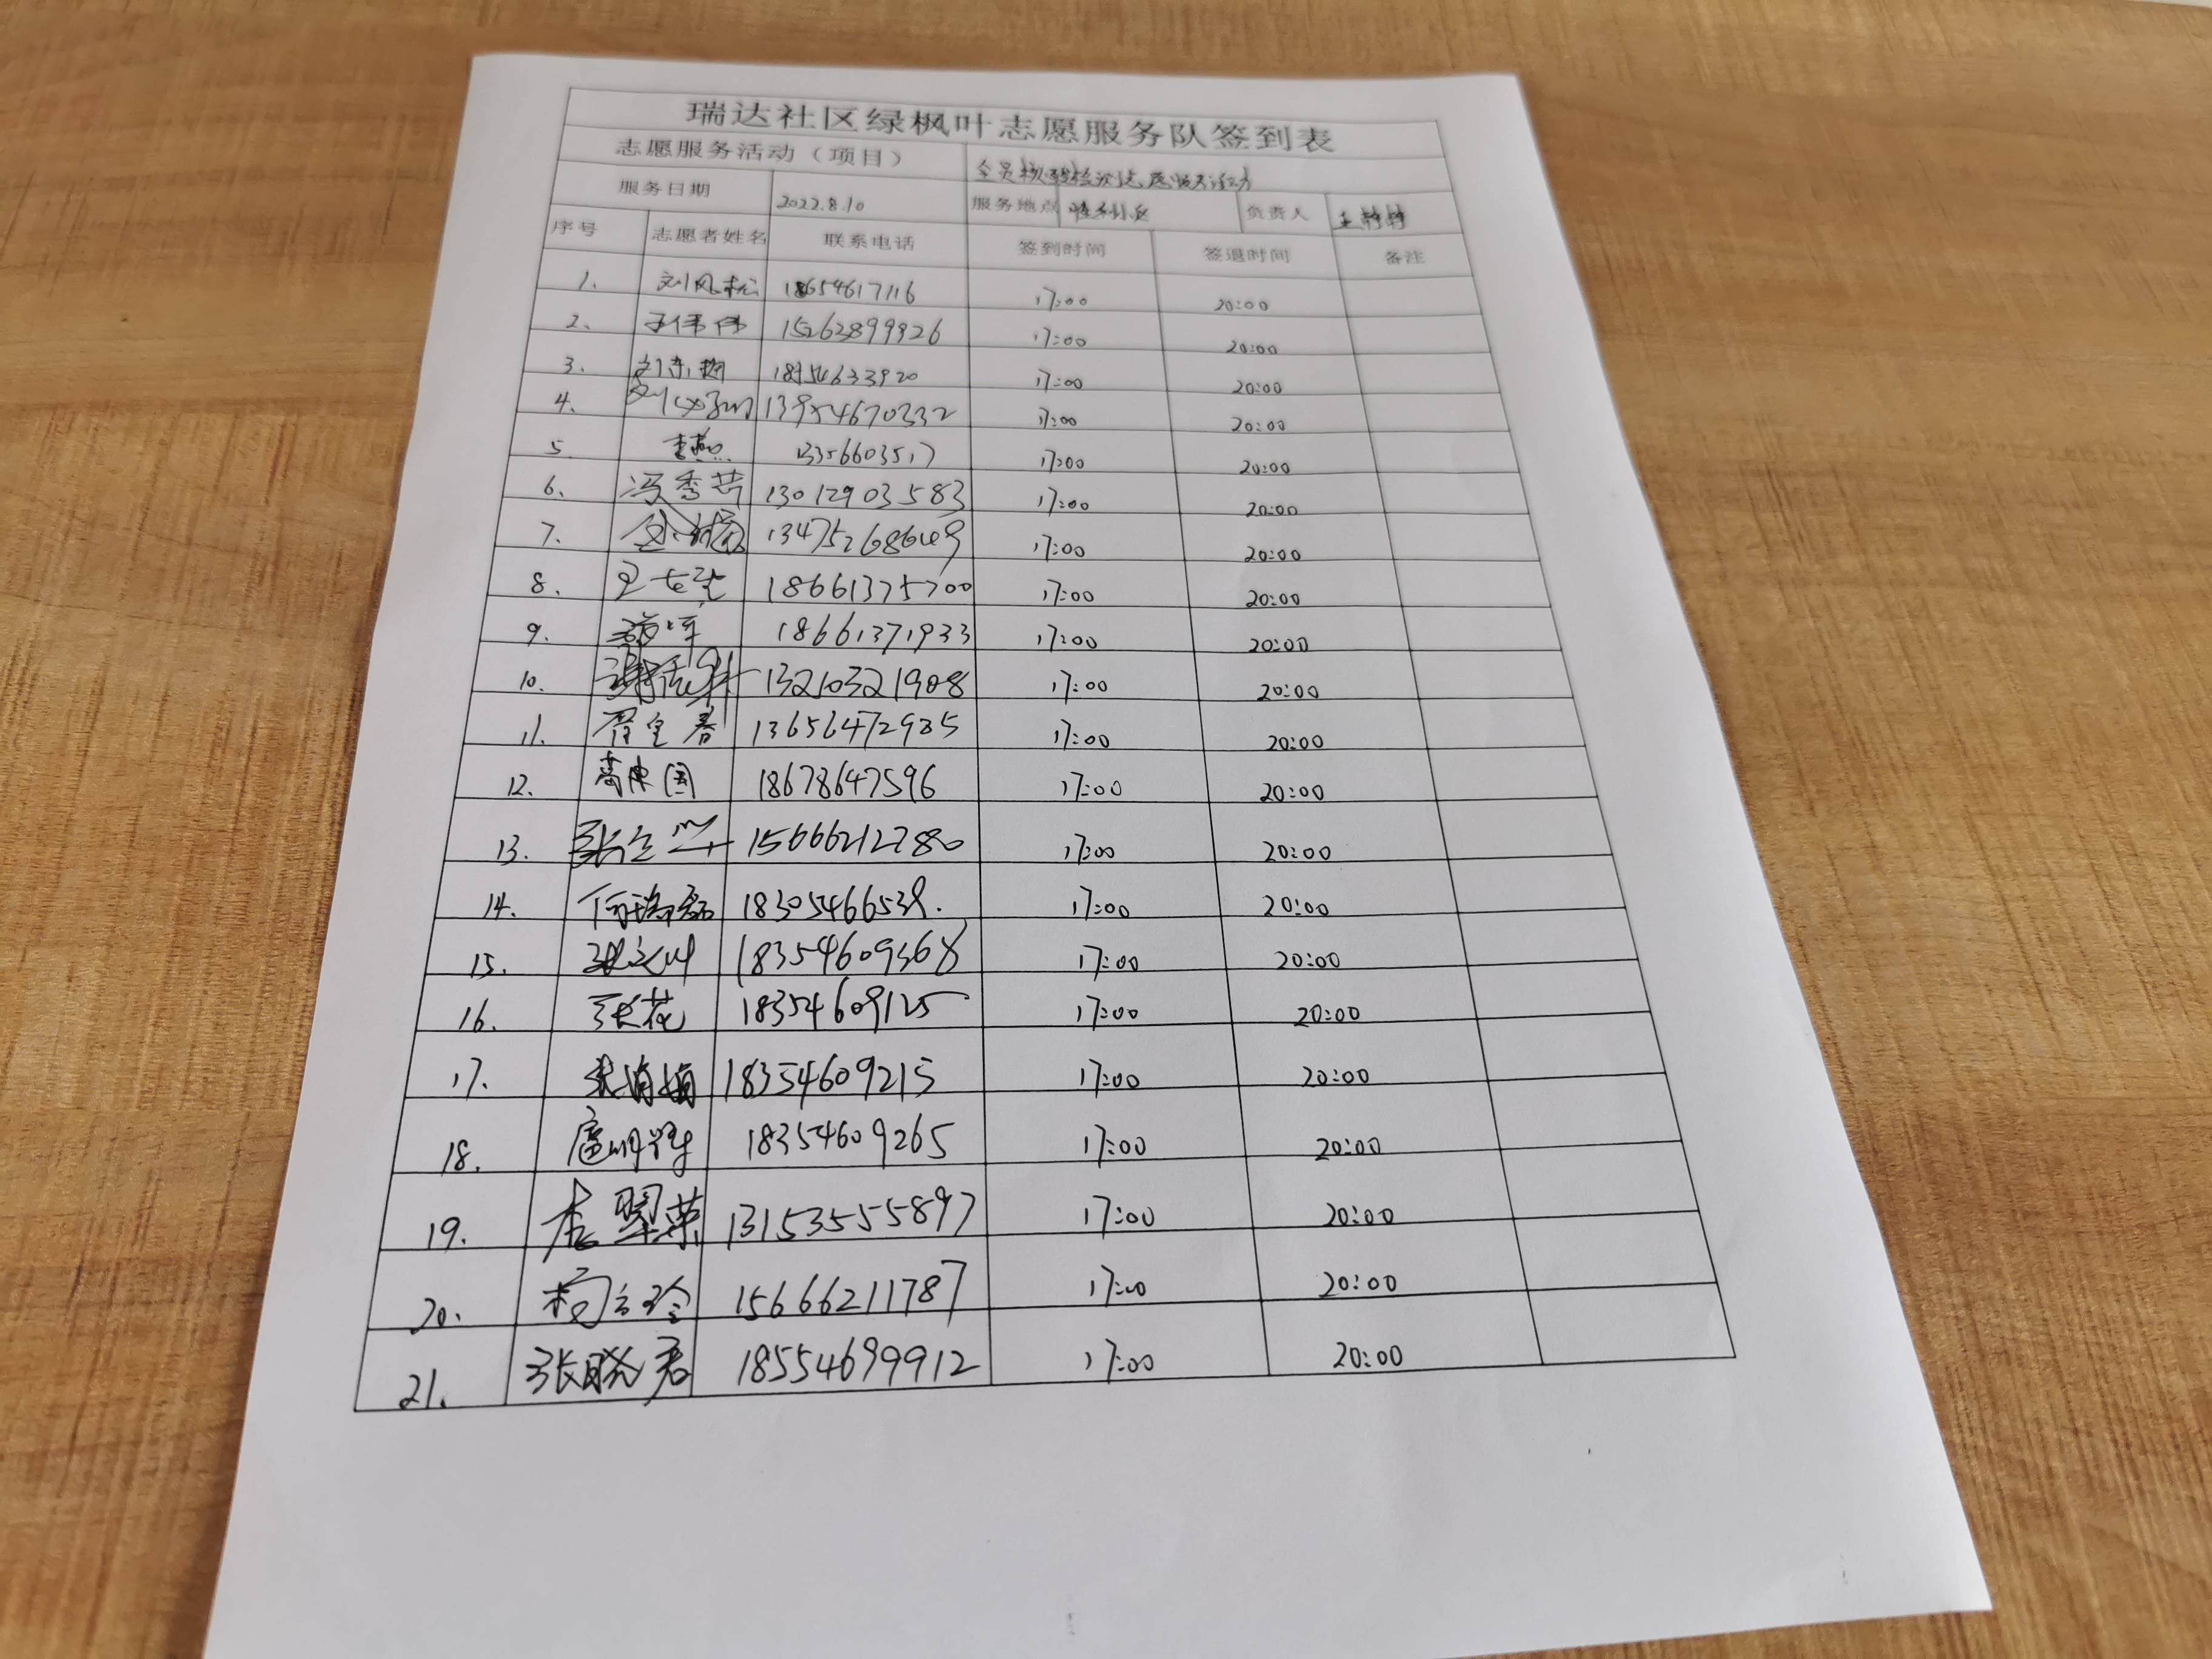 瑞达社区绿枫叶志愿服务队签到表
志愿服务活动（项目） 全员核酸检测志愿服务活动
服务日期 2022.8.10 服务地点 负责人 王婷婷
序号 志愿者姓名 联系电话 签到时间 签退时间 备注
1. 刘风松 18654617116 17:00 20:00
2. 15262899926 17:00 20:00
3. 18954633920 17:00 20:00
4. 13954670332 17:00 20:00
5. 李燕 13356603517 17:00 20:00
6. 冯秀芹 13012903583 17:00 20:00
7. 17:00 20:00
8. 18661375700 17:00 20:00
9. 18661371933 17:00 20:00
10. 13210321908 17:00 20:00
11. 13656472985 17:00 20:00
12. 18678647596 17:00 20:00
13. 15666212780 17:00 20:00
14. 18305466539. 17:00 20:00
15. 18354609368 17:00 20:00
16. 张花 18354609125 17:00 20:00
17. 18354609215 17:00 20:00
18. 18354609265 17:00 20:00
19. 李翠荣 13153555897 17:00 20:00
20. 15666211787 17:00 20:00
21. 张晓君 18554699912 17:00 20:00